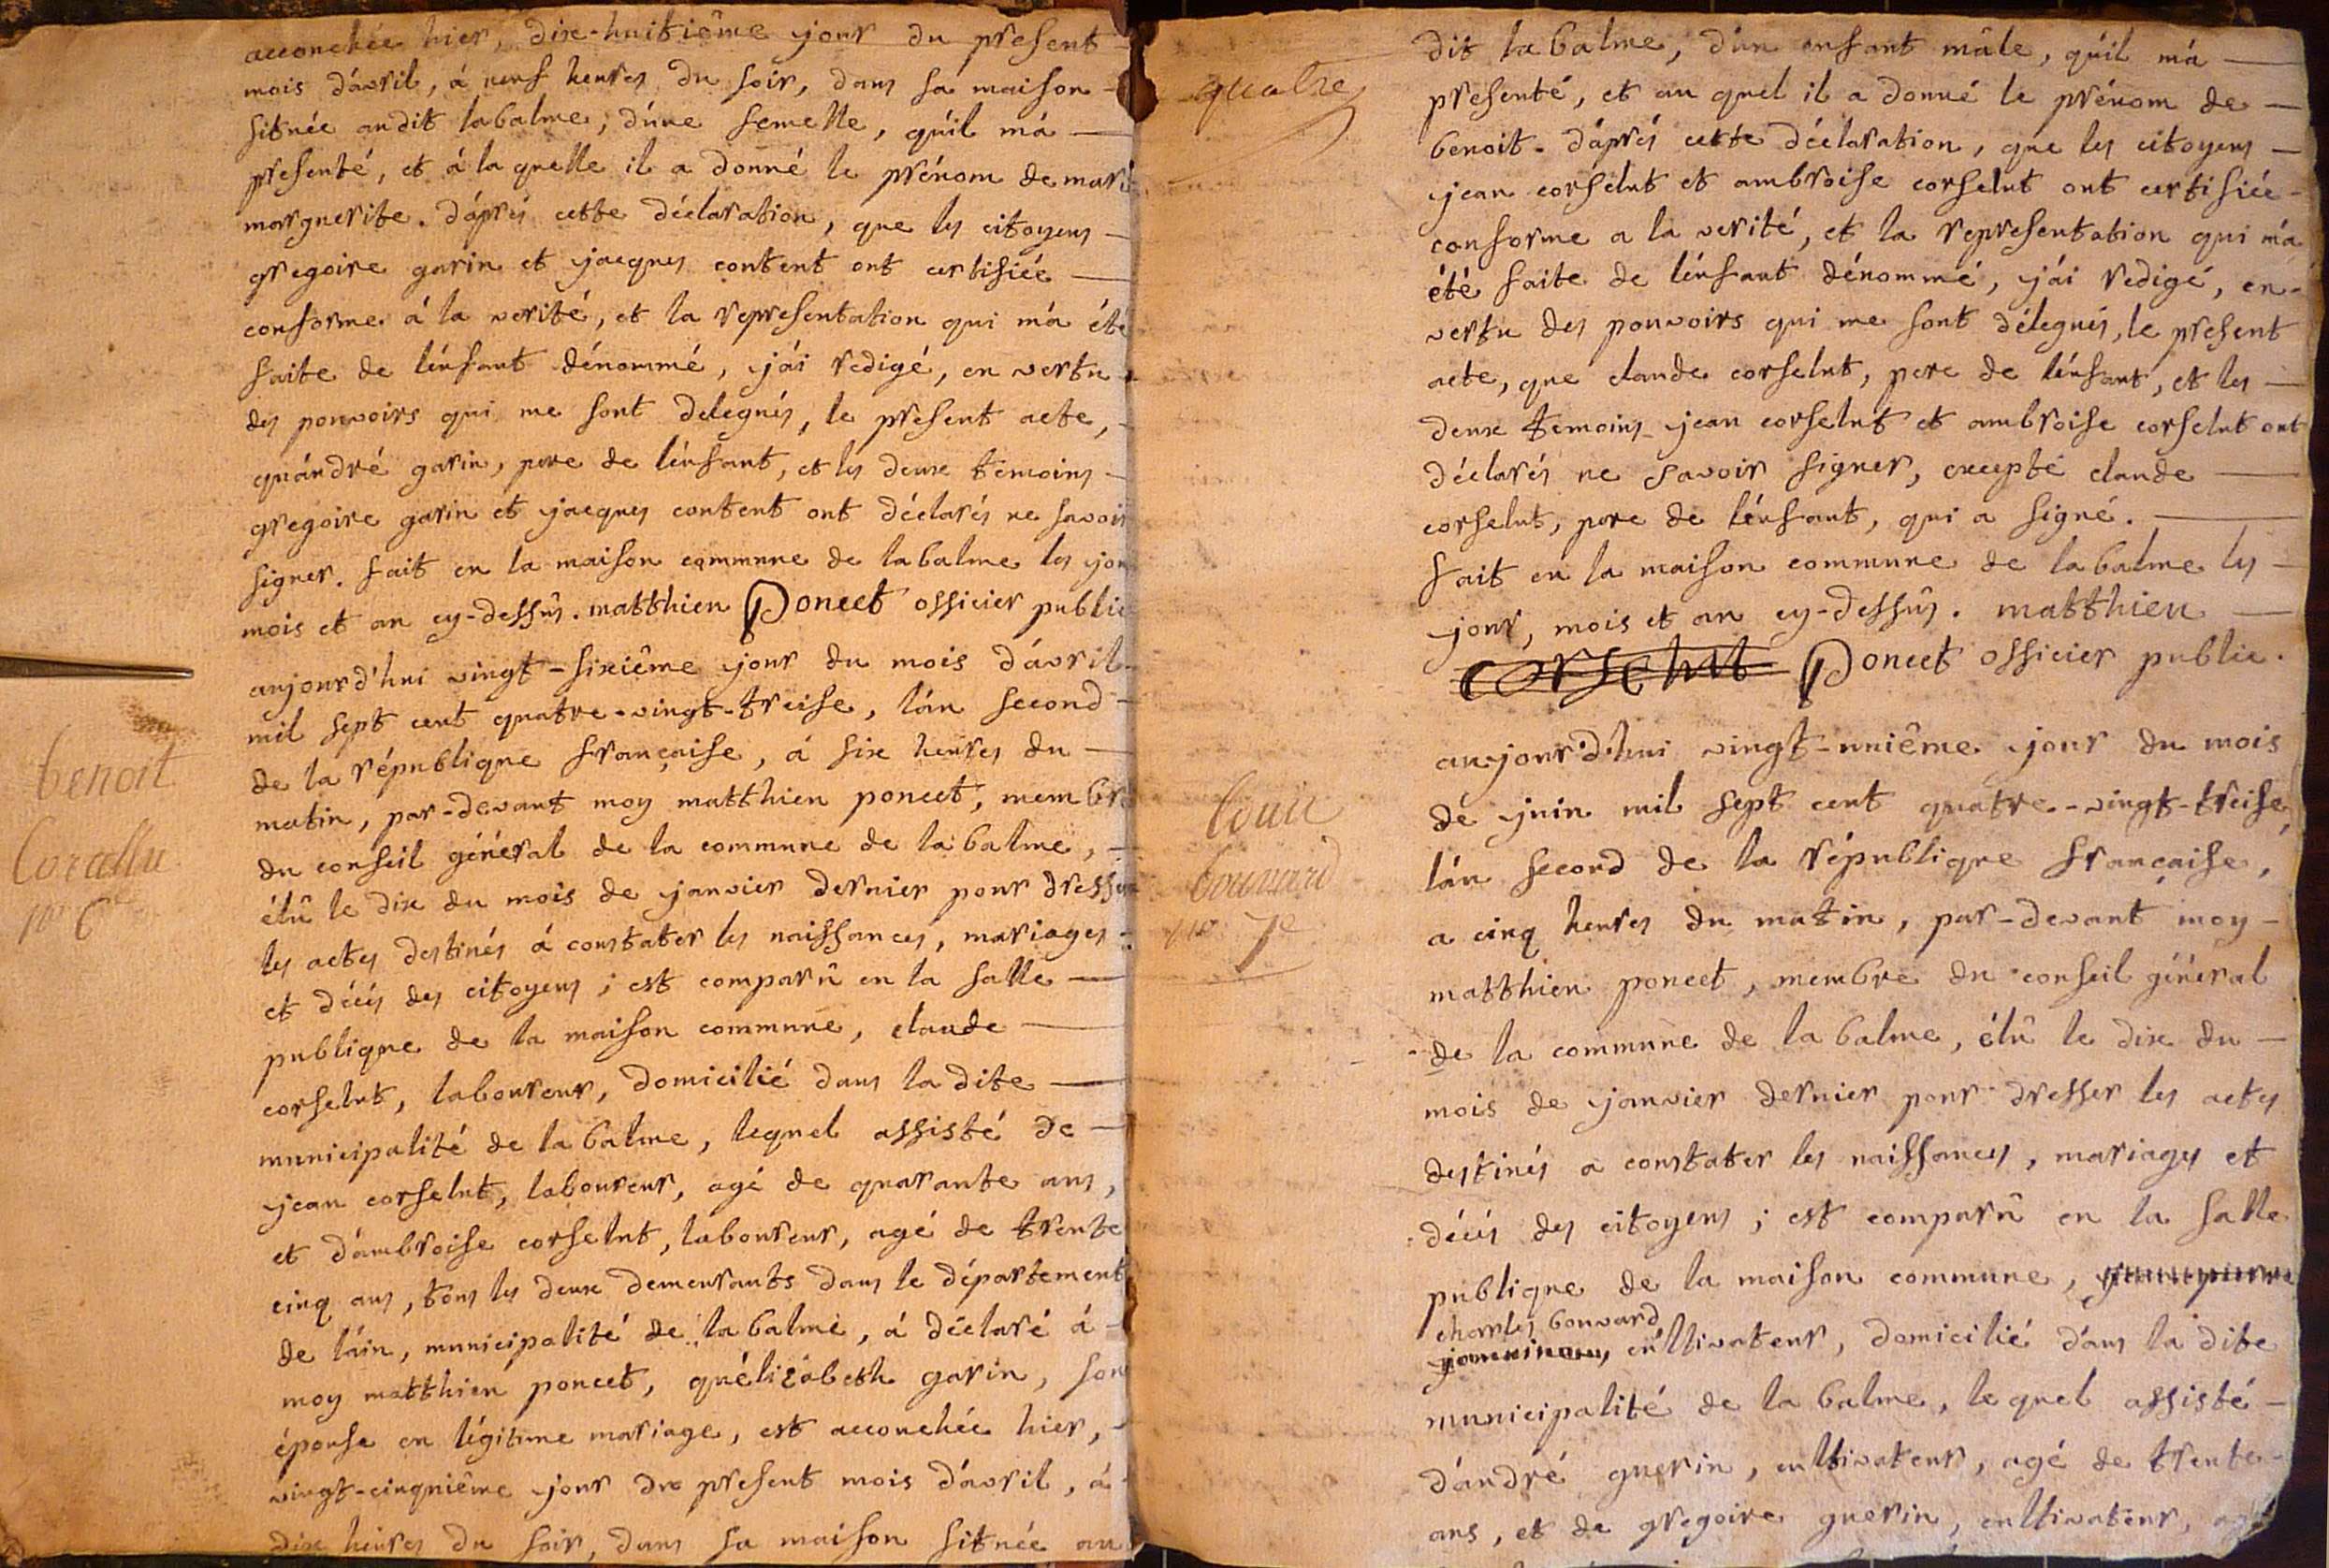 accouchée hier, dix-huitiême jour du present
mois d'avril, á neuf heures du soir, dans sa maison
située audit labalme, d'une femelle, qu'il m'a
presenté, et á la quelle il a donné le prénom de mari
marguerite. d'aprés cette déclaration, que les citoyens
gregoire garin et jacques content ont certifiée
conforme á la verité, et la representation qui m'a été
faite de l'enfant dénommé, j'ai redigé, en vertu
des pouvoirs qui me sont delegués, le present acte,
qu'andré garin, pere de l'enfant, et les deux temoins
gregoire garin et jacques content ont déclarés ne savoir
signer. fait en la maison commune de labalme les jour
mois et an cy-dessûs. matthieu Poncet officier public
benoit
Corcellu
no 6e
aujourd'hui vingt-sixiême jour du mois d'avril
mil sept cent quatre-vingt-treise, l'án second
de la république française, á six heures du
matin, par-devant moy matthieu poncet, membre
du conseil général de la commune de labalme,
élû le dix du mois de janvier dernier pour dresser
les actes destinés á constater les naissances, mariages
et décés des citoyens ; est comparû en la salle
publique de la maison commune, claude
corselut, laboureur, domicilié dans la dite
municipalité de labalme, lequel assisté de
jean corselut, laboureur, agé de quarante ans,
et d'ambroise corselut, laboureur, agé de trente
cinq ans, tous les deux demeurants dans le département
de l'áin, municipalité de labalme, á déclaré á
moy matthieu poncet, qu'élizabeth garin, son
épouse en légitime mariage, est accouchée hier,
vingt-cinquiême jour du present mois d'avril, á
dix heures du soir, dans sa maison située au
quatre
dit labalme, d'un enfant mâle, qu'il m'a
presenté, et au quel il a donné le prénom de
benoit. d'aprés cette déclaration, que les citoyens
jean corselut et ambroise corselut ont certifiée
conforme a la verité, et la representation qui m'a
été faite de l'enfant dénommé, j'ai redigé, en
vertu des pouvoirs qui me sont délegués, le present
acte, que claude corselut, pere de l'enfant, et les
deux temoins jean corselut et ambroise corselut ont
déclarés ne savoir signer, excepté claude
corselut, pere de l'enfant, qui a signé.
fait en la maison commune de labalme les
jour, mois et an cy-dessûs. matthieu
corselut Poncet officier public.
bouvard
no 7e
aujourd'hui vingt-uniême jour du mois
de juin mil sept cent quatre-vingt-treise,
l'án second de la république française,
a cinq heures du matin, par-devant moy
matthieu poncet, membre du conseil général
de la commune de labalme, élû le dix du
mois de janvier dernier pour dresser les actes
destinés a constater les naissances, mariages et
décés des citoyens ; est comparû en la salle
publique de la maison commune,
charles bouvard
cultivateur, domicilié dans la dite
municipalité de la balme, lequel assisté
d'andré guerin, cultivateur, agé de trente
ans, et de gregoire guerin, cultivateur, agé